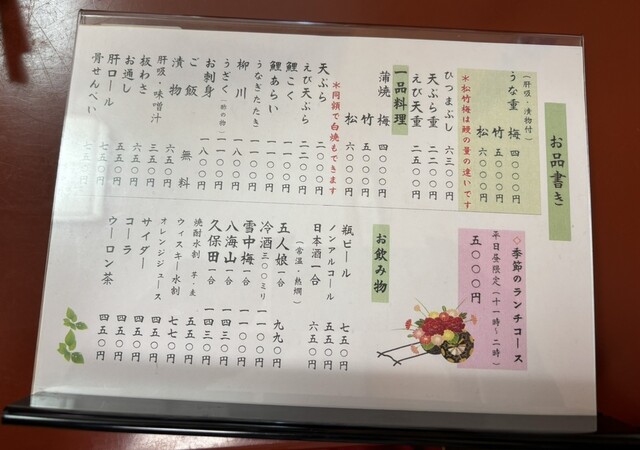 お品書き
（肝吸・漬物付）
うな重 梅 四〇〇〇円
竹 五〇〇〇円
松 六〇〇〇円
＊松竹梅は鰻の量の違いです
ひつまぶし 六三〇〇円
天ぷら重 二二〇〇円
えび天重 二五〇〇円
一品料理
蒲焼 梅 四〇〇〇円
竹 五〇〇〇円
松 六〇〇〇円
＊同額で白焼もできます
天ぷら 二〇〇〇円
えび天ぷら 二二〇〇円
鯉こく 一一〇〇円
鯉あらい 一一〇〇円
うなぎたたき 一一〇〇円
柳川 一一〇〇円
うざく（酢の物） 一一〇〇円
お刺身 一八〇〇円
ご飯
漬物 無料
肝吸・味噌汁
板わさ 六五〇円
お通し 三五〇円
肝ロール 六五〇円
骨せんべい 七五〇円
◇季節のランチコース
平日昼限定（十一時～二時）
五〇〇〇円
お飲み物
瓶ビール 七五〇円
ノンアルコール 五五〇円
日本酒一合 六五〇円
（常温・熱燗）
五人娘 一合 九九〇円
冷酒 三〇〇ミリ 一一〇〇円
雪中梅 一合 一四三〇円
八海山 一合 一四三〇円
久保田 一合 一四三〇円
焼酎水割 芋・麦 五五〇円
ウィスキー水割 七七〇円
オレンジジュース 四五〇円
サイダー 四五〇円
コーラ 四五〇円
ウーロン茶 四五〇円